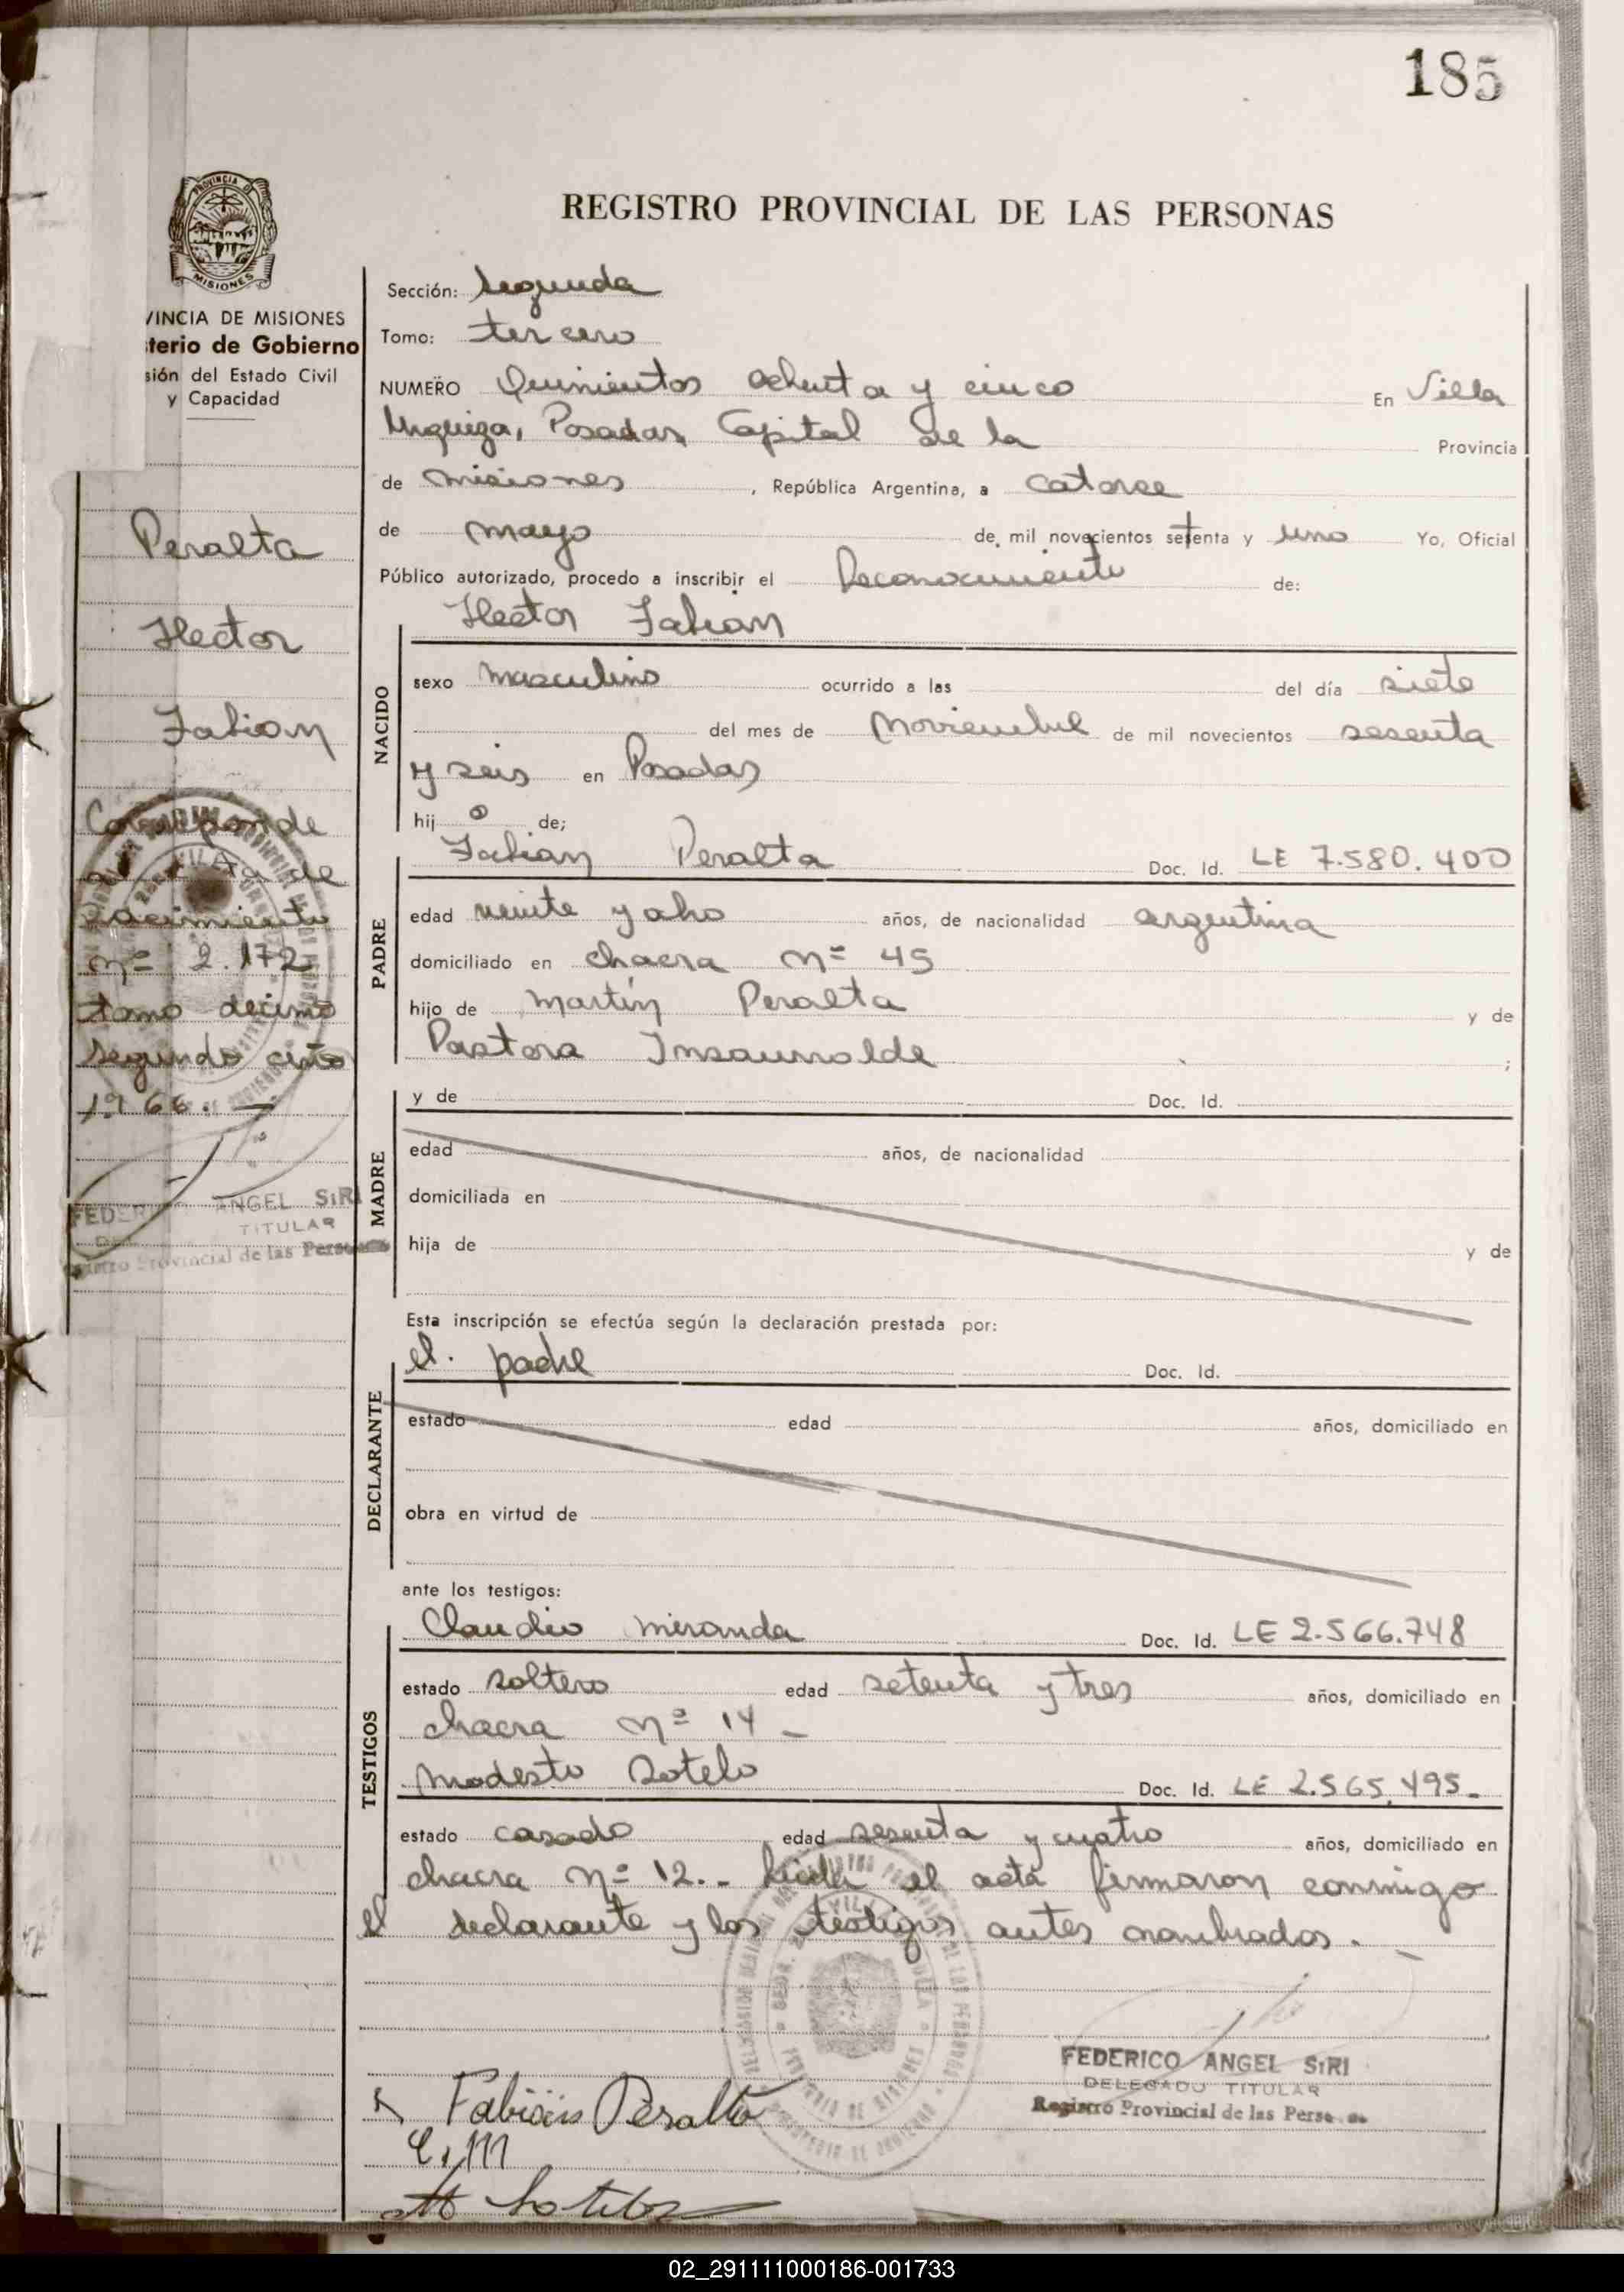 185
PROVINCIA DE
MISIONES
REGISTRO PROVINCIAL DE LAS PERSONAS
VINCIA DE MISIONES
terio de Gobierno
sión del Estado Civil
y Capacidad
Peralta
Hector
Fabian
Corresponde
al acta de
nacimiento
nº 2.172
tomo decimo
segundo año
1966.
ANGEL SIRI
TITULAR
Provincial de las Personas
Sección: Segunda
Tomo: tercero
NUMERO Quinientos ochenta y cinco En Villa
Urquiza, Posadas Capital de la Provincia
de Misiones, República Argentina, a catorce
de mayo de mil novecientos setenta y uno Yo, Oficial
Público autorizado, procedo a inscribir el Reconocimiento de:
Hector Fabian
NACIDO
sexo masculino ocurrido a las del día siete
del mes de Noviembre de mil novecientos sesenta
y seis en Posadas
hij o de;
Fabian Peralta Doc. Id. LE 7.580.400
PADRE
edad veinte y ocho años, de nacionalidad argentina
domiciliado en chacra nº 45
hijo de Martin Peralta y de
Pastora Insaurralde ;
y de Doc. Id.
MADRE
edad años, de nacionalidad
domiciliada en
hija de y de
Esta inscripción se efectúa según la declaración prestada por:
el padre Doc. Id.
DECLARANTE
estado edad años, domiciliado en
obra en virtud de
ante los testigos:
Claudio Miranda Doc. Id. LE 2.566.748
TESTIGOS
estado soltero edad setenta y tres años, domiciliado en
chacra nº 14 -
Modesto Sotelo Doc. Id. LE 2.565.495-
estado casado edad sesenta y cuatro años, domiciliado en
chacra nº 12.- el acta firmaron conmigo
el declarante y los testigos antes nombrados.
FEDERICO ANGEL SIRI
DELEGADO TITULAR
Registro Provincial de las Personas
Fabian Peralta
C.M
M Sotelo
02_291111000186-001733